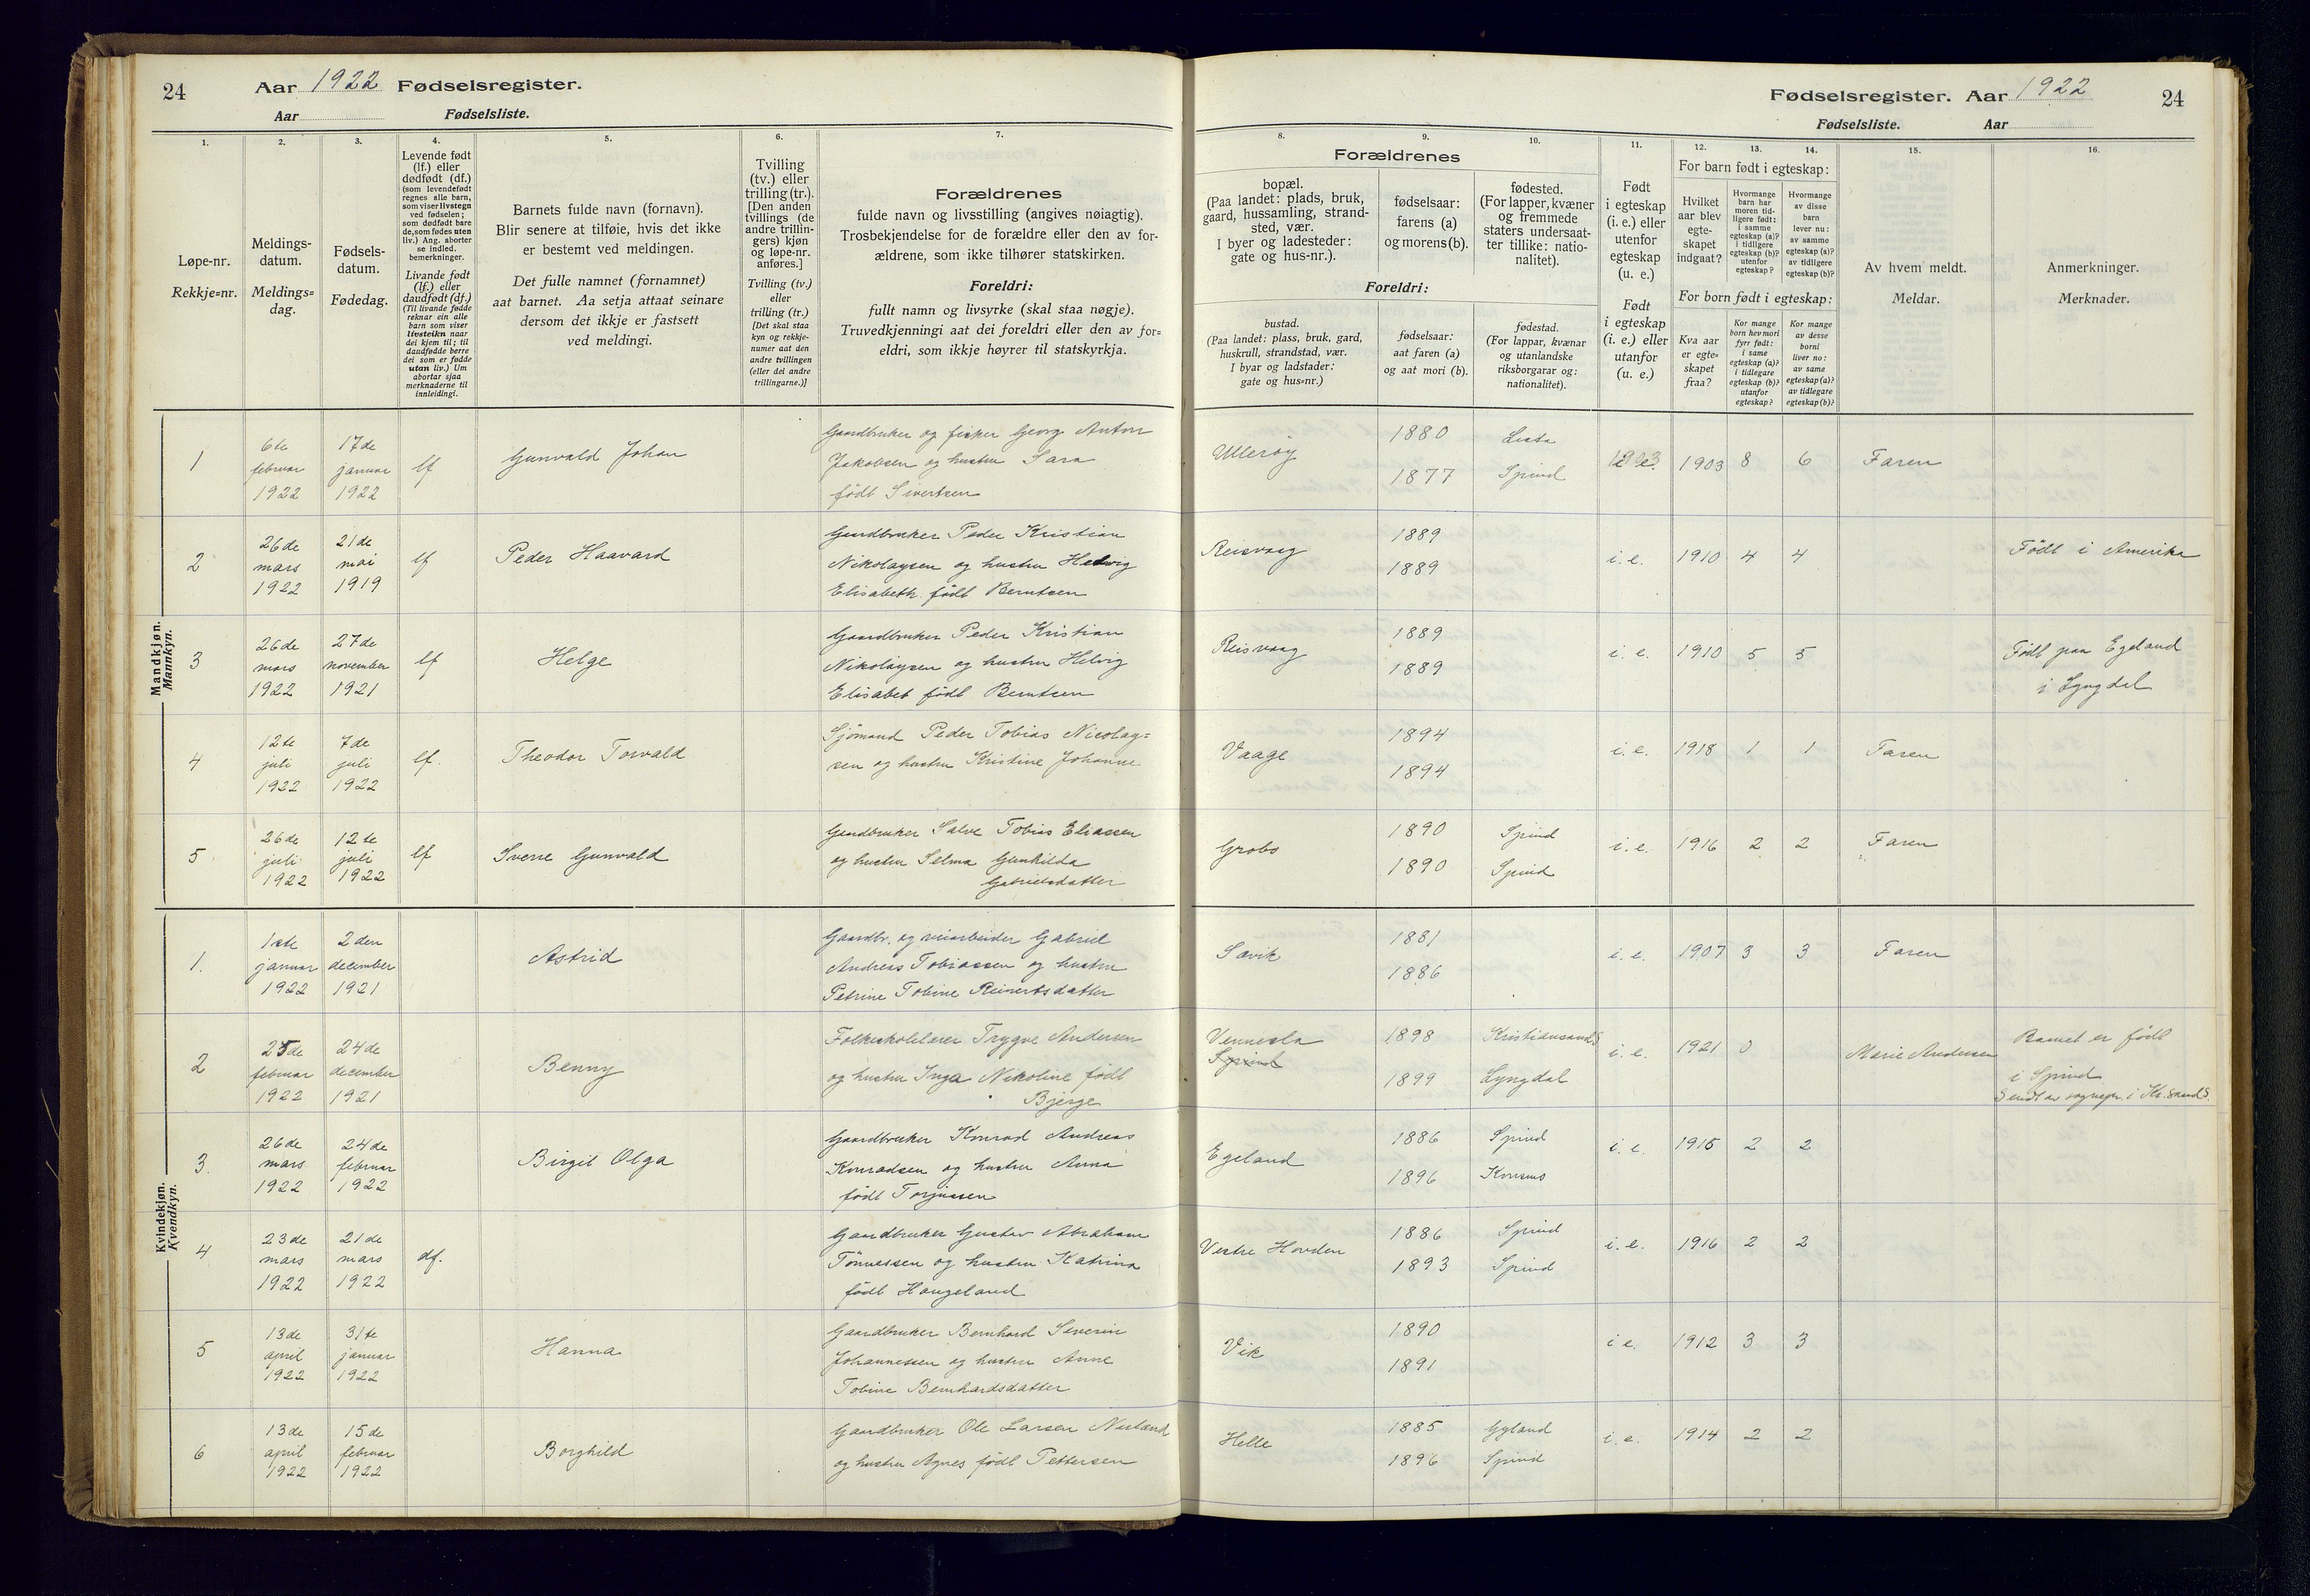 24
Aar 1922 Fødselsregister.
Aar Fødselsliste.
1.
2.
3.
4.
5.
6.
7.
Løpe-nr.
Rekkje=nr.
Meldings-
datum.
Meldings=
dag.
Fødsels-
datum.
Fødedag.
Levende født
(lf.) eller
dødfødt (df.)
(som levendefødt
regnes alle barn,
som viser livstegn
ved fødselen;
som dødfødt bare
de, som fødes uten
liv.) Ang. aborter
se indled.
bemerkninger.
Livande født
(lf.) eller
daudfødt (df.)
(Til livande fødde
reknar ein alle
barn som viser
livsteikn naar
dei kjem til; til
daudfødde berre
dei som er fødde
utan liv.) Um
abortar sjaa
merknaderne til
innleidingi.
Barnets fulde navn (fornavn).
Blir senere at tilføie, hvis det ikke
er bestemt ved meldingen.
Det fulle namnet (fornamnet)
aat barnet. Aa setja attaat seinare
dersom det ikkje er fastsett
ved meldingi.
Tvilling
(tv.) eller
trilling (tr.).
[Den anden
tvillings (de
andre trillin-
gers) kjøn
og løpe-nr.
anføres.]
Tvilling (tv.)
eller
trilling (tr.)
[Det skal staa
kyn og rekkje-
numer aat den
andre tvillingen
(eller dei andre
trillingarne.)]
Forældrenes
fulde navn og livsstilling (angives nøiagtig).
Trosbekjendelse for de forældre eller den av for-
ældrene, som ikke tilhører statskirken.
Foreldri:
fullt namn og livsyrke (skal staa nøgje).
Truvedkjenningi aat dei foreldri eller den av for=
eldri, som ikkje høyrer til statskyrkja.
Mandkjøn.
Mannkyn.
1
6te
februar
1922
17de
januar
1922
lf
Gunvald Johan
Gaardbruker og fisker Georg Anton
Jakobsen og hustru Sara
født Sivertsen
2
26de
mars
1922
21de
mai
1919
lf
Peder Haavard
Gaardbruker Peder Kristian
Nikolaysen og hustru Hedvig
Elisabeth født Berntsen
3
26de
mars
1922
27de
november
1921
lf
Helge
Gaardbruker Peder Kristian
Nikolaysen og hustru Helvig
Elisabet født Berntsen
4
12te
juli
1922
7de
juli
1922
lf.
Theodor Torvald
Sjømand Peder Tobias Nicolay=
sen og hustru Kristine Johanne
5
26de
juli
1922
12te
juli
1922
lf
Sverre Gunvald
Gaardbruker Salve Tobias Eliassen
og hustru Selma Gunhilda
Gabrielsdatter
Kvindekjøn.
Kvendkyn.
1.
1ste
januar
1922
2den
december
1921
Astrid
Gaardbr. og veiarbeider Gabriel
Andreas Tobiassen og hustru
Petrine Tobine Reinertsdatter
2
25de
februar
1922
24de
december
1921
Benny
Folkeskolelærer Trygve Andersen
og hustru Inga Nikoline født
Bjerge
3.
26de
mars
1922
24de
februar
1922
Birgit Olga
Gaardbruker Konrad Andreas
Konradsen og hustru Anna
født Torjussen
4
23de
mars
1922
21de
mars
1922
df.
Gaardbruker Gustav Abraham
Tønnessen og hustru Katrina
født Haugeland
5
13de
april
1922
31te
januar
1922
Hanna
Gaardbruker Bernhard Severin
Johannessen og hustru Anne
Tobine Bernhardsdatter
6
13de
april
1922
15de
februar
1922
Borghild
Gaardbruker Ole Larsen Neuland
og hustru Agnes født Pettersen
Fødselsregister. Aar 1922
24
Fødselsliste. Aar
8.
9.
10.
11.
12.
13.
14.
15.
16.
Forældrenes
bopæl.
(Paa landet: plads, bruk,
gaard, hussamling, strand-
sted, vær.
I byer og ladesteder:
gate og hus-nr.).
fødselsaar:
farens (a)
og morens (b).
fødested.
(For lapper, kvæner
og fremmede
staters undersaat-
ter tillike: natio-
nalitet).
Foreldri:
bustad.
(Paa landet: plass, bruk, gard,
huskrull, strandstad, vær.
I byar og ladstader:
gate og hus=nr.)
fødselsaar:
aat faren (a)
og aat mori (b).
fødestad.
(For lappar, kvænar
og utanlandske
riksborgarar og:
nationalitet).
Født
i egteskap
(i. e.) eller
utenfor
egteskap
(u. e.)
Født
i egteskap
(i. e.) eller
utanfor
(u. e.)
For barn født i egteskap:
Hvilket
aar blev
egte-
skapet
indgaat?
Hvormange
barn har
moren tid-
ligere født:
i samme
egteskap (a)?
i tidligere
egteskap (b)?
utenfor
egteskap?
Hvormange
av disse
barn
lever nu:
av samme
egteskap (a)?
av tidligere
egteskap (b)?
For born født i egteskap:
Kva aar
er egte=
skapet
fraa?
Kor mange
born hev mori
fyrr født:
i same
egteskap (a)?
i tidlegare
egteskap (b)?
utanfor
egteskap?
Kor mange
av desse
borni
liver no:
av same
egteskap (a)?
av tidlegare
egteskap (b)?
Av hvem meldt.
Meldar.
Anmerkninger.
Merknader.
Ullerøy
1880
1877
Lista
Spind
i. e.
1903
8
6
Faren
Reisvaag
1889
1889
i. e.
1910
4
4
Født i Amerika
Reisvaag
1889
1889
i. e.
1910
5
5
Født paa Egeland
i Lyngdal
Vaage
1894
1894
i. e.
1918
1
1
Faren
Grobs
1890
1890
Spind
Spind
i. e.
1916
2
2
Faren
Sævik
1881
1886
i. e.
1907
3
3
Faren
Vennesla
Spind
1898
1899
Kristiansand S
Lyngdal
i. e.
1921
0
Marie Andersen
Barnet er født
i Spind
Sendt av sognepr. i Kr.sand S.
Egeland
1886
1896
Spind
Konsmo
i. e.
1915
2
2
Vestre Hovden
1886
1893
Spind
Spind
i. e.
1916
2
2
Vik
1890
1891
i e.
1912
3
3
Helle
1885
1896
Gyland
Spind
i. e.
1914
2
2